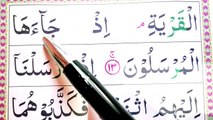 الْقَرْيَةِ ۘ اِذْ جَآءَهَا
الْمُرْسَلُوْنَ ۚ ﴿١٣﴾ اِذْ اَرْسَلْنَا
اِلَيْهِمُ اثْنَيْنِ فَكَذَّبُوْهُمَا